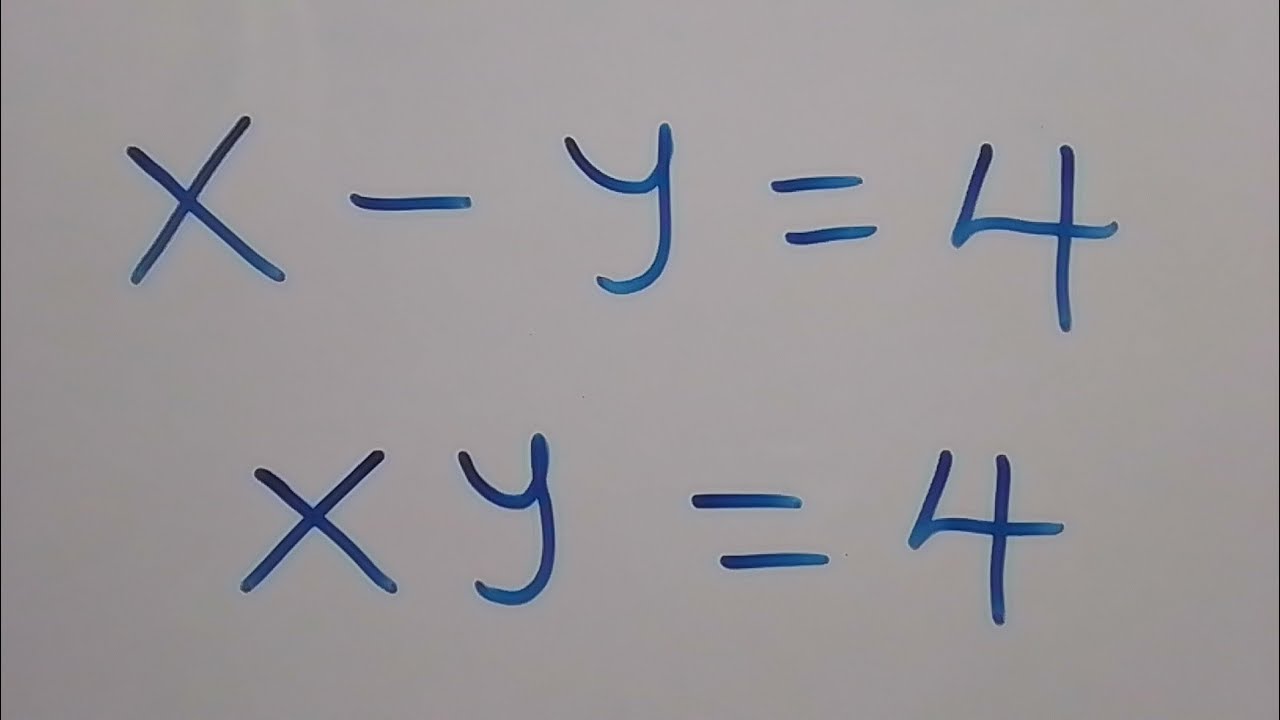 x - y = 4
xy = 4